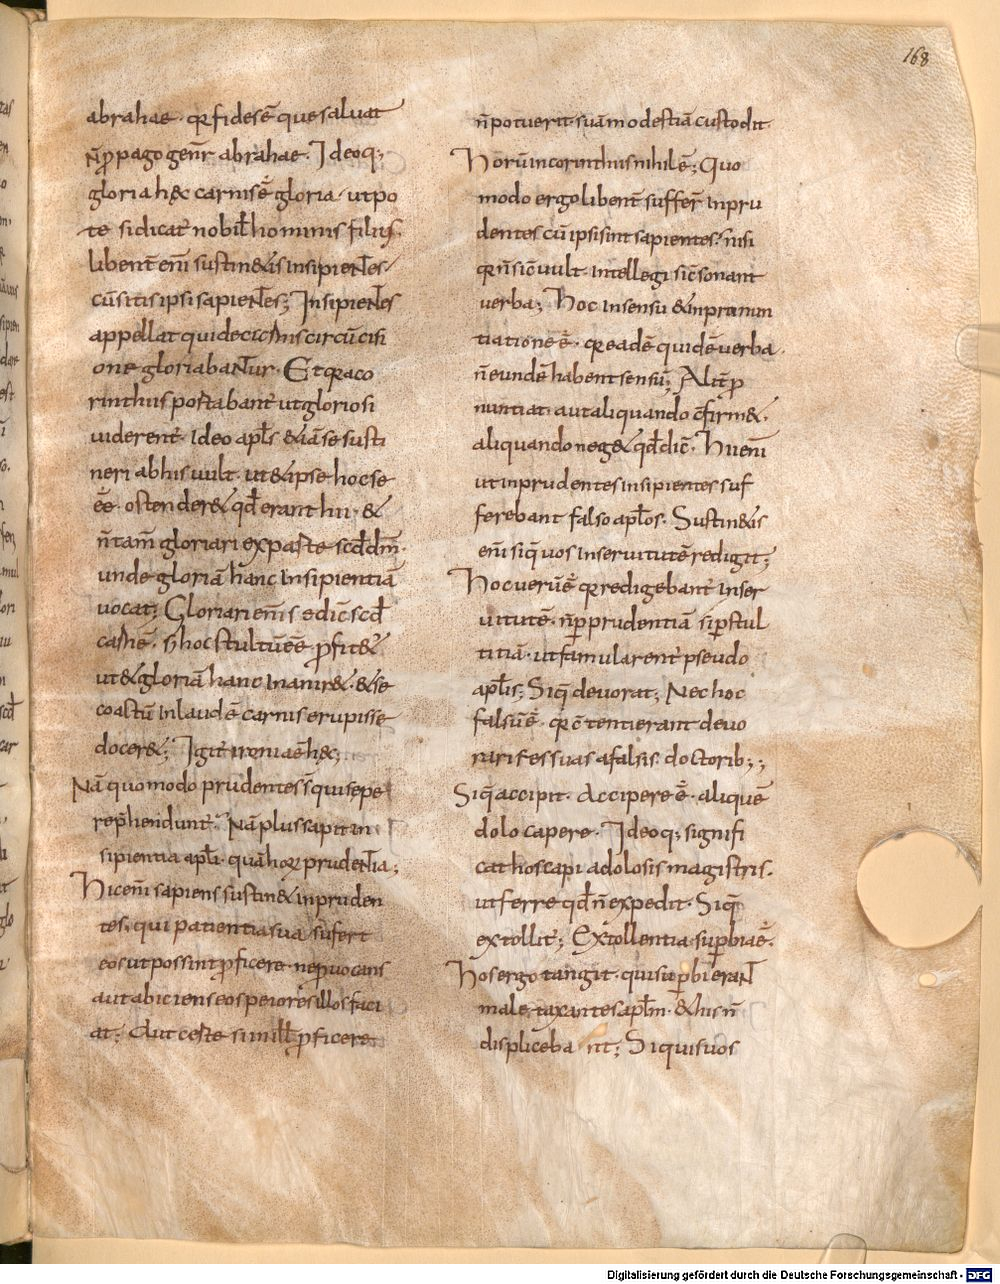 168
abrahae · qr fides ē que saluat
n̄ ꝓpago gener̄ abrahae · Ideoq;
gloria h&c carnis ē gloria · ut po
te si dicat nobil̄ hominis filius ·
libent̄ eni͞ sustin&is insipientes
cū sitis ipsi sapientes; Insipientes
appellat qui de circūcisi
one gloriabantur · Et qr a co
rinthiis postabant̄ ut gloriosi
uiderent̄ · Ideo apl̄s &iā se susti
neri ab his uult · ut & ipse hoc se
ēē ostender& qđ erant hii · &
n̄ tam̄ gloriari ex parte scđ dm̄ ·
unde gloriā hanc insipientiā
uocat; Gloriari eni͞ se dic̄ scđ
carnē · s̄ hoc stultū ēē ꝓfit&̄
ut & gloriā hanc inanir& · & se
coactū in laudē carnis erupisse
docer&; Igit̄ ironia ē h&c;
Nā quomodo prudentes s̄ qui sepe
rep̄hendunt̄ · Nā plus sapit in
sipientia apl̄i · quā horꝝ prudentia;
Hic eni͞ sapiens sustin& inpruden
tes, qui patientia sua sufert
eos ut possint ꝓficere · ne ꝓuocans
aut abiciens eos peiores illos faci
at; Aut certe si nill̄ ꝓficere
n̄ potuerit suā modestiā custodit ·
Horū in corinthiis nihil ē; Quo
modo ergo libent̄ suffer̄ inpru
dentes cū ipsi sint sapientes · nisi
qr n̄ sic uult intellegi sic̄ sonant
uerba; Hoc in sensu & in pronun
tiatione ē · qr eadē quidē uerba ·
n̄ eundē habent sensū; Alit̄ ꝓ
nuntiat · aut aliquando c̄firm& ·
aliquando neg& qđ dic̄ · Hii eni͞
ut inprudentes insipientes suf
ferebant falso apl̄os · Sustin&is
eni͞ siq̄ uos in seruitutē redigit;
Hoc uerū ē qr redigebant̄ in ser
uitutē · n̄ ꝑ prudentiā s̄ ꝑ stul
titiā · ut famularent̄ pseudo
apl̄is; Siq̄ deuorat; Nec hoc
falsū ē · qr c̄tenti erant deuo
rari res suas a falsis doctorib;;
Siq̄ accipit · Accipere ē · aliquē
dolo capere · Ideoq; signifi
cat hos capi a dolosis magistris ·
ut ferre qđ n̄ expedit · Siq̄
extollit̄; Extollentia suꝑbiae ē ·
Hos ergo tangit · qui suꝑbi erant
male, taxantes apl̄m · & his n̄
displiceba nt; Si quis uos
Digitalisierung gefördert durch die Deutsche Forschungsgemeinschaft - DFG